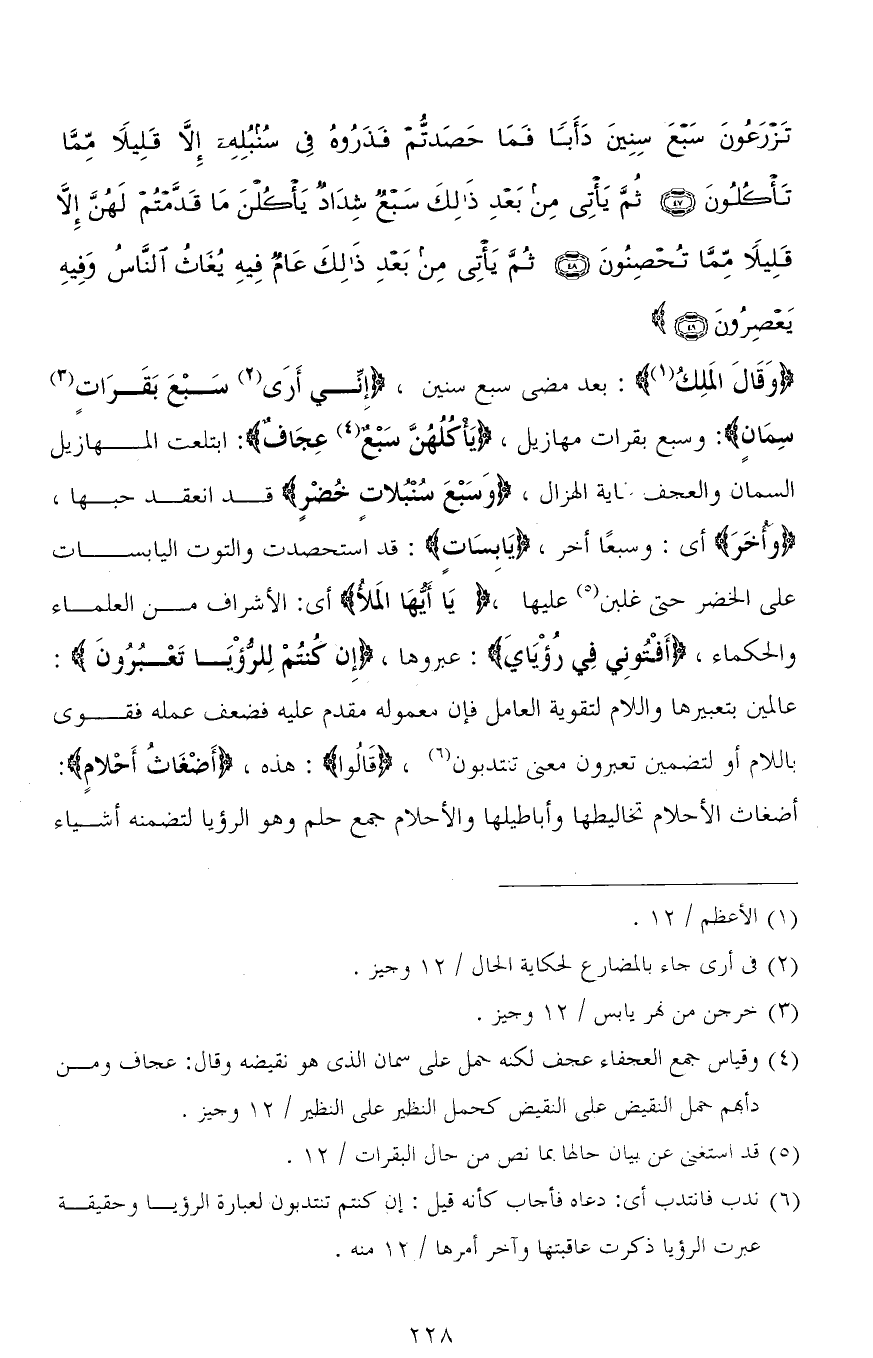 تَزْرَعُونَ سَبْعَ سِنِينَ دَأَبًا فَمَا حَصَدتُّمْ فَذَرُوهُ فِى سُنۢبُلِهِۦٓ إِلَّا قَلِيلًا مِّمَّا
تَأْكُلُونَ ﴿٤٧﴾ ثُمَّ يَأْتِى مِنۢ بَعْدِ ذَٰلِكَ سَبْعٌ شِدَادٌ يَأْكُلْنَ مَا قَدَّمْتُمْ لَهُنَّ إِلَّا
قَلِيلًا مِّمَّا تُحْصِنُونَ ﴿٤٨﴾ ثُمَّ يَأْتِى مِنۢ بَعْدِ ذَٰلِكَ عَامٌ فِيهِ يُغَاثُ ٱلنَّاسُ وَفِيهِ
يَعْصِرُونَ ﴿٤٩﴾ ﴾
﴿وَقَالَ المَلِكُ(١)﴾ : بعد مضى سبع سنين ، ﴿إِنِّي أَرَى(٢) سَبْعَ بَقَرَاتٍ(٣)
سِمَانٍ﴾: وسبع بقرات مهازيل ، ﴿يَأْكُلُهُنَّ سَبْعٌ(٤) عِجَافٌ﴾: ابتلعت المهازيل
السمان والعجف غاية الهزال ، ﴿وَسَبْعَ سُنْبُلاتٍ خُضْرٍ﴾ قد انعقد حبها ،
﴿وَأُخَرَ﴾ أى : وسبعًا أخر ، ﴿يَابِسَاتٍ﴾ : قد استحصدت والتوت اليابسات
على الخضر حتى غلبن(٥) عليها ،﴿ يَا أَيُّهَا المَلأُ﴾ أى: الأشراف من العلماء
والحكماء ، ﴿أَفْتُونِي فِي رُؤْيَايَ﴾ : عبروها ، ﴿إِن كُنتُمْ لِلرُّؤْيَا تَعْبُرُونَ ﴾ :
عالمين بتعبيرها واللام لتقوية العامل فإن معموله مقدم عليه فضعف عمله فقوى
باللام أو لتضمين تعبرون معنى تنتدبون(٦) ، ﴿قَالُوا﴾ : هذه ، ﴿أَضْغَاثُ أَحْلامٍ﴾:
أضغاث الأحلام تخاليطها وأباطيلها والأحلام جمع حلم وهو الرؤيا لتضمنه أشياء
(١) الأعظم / ١٢ .
(٢) فى أرى جاء بالمضارع لحكاية الحال / ١٢ وجيز .
(٣) خرجن من نهر يابس / ١٢ وجيز .
(٤) وقياس جمع العجفاء عجف لكنه حمل على سمان الذى هو نقيضه وقال: عجاف ومن
دأبهم حمل النقيض على النقيض كحمل النظير على النظير / ١٢ وجيز .
(٥) قد استغنى عن بيان حالها بما نص من حال البقرات / ١٢ .
(٦) ندب فانتدب أى: دعاه فأجاب كأنه قيل : إن كنتم تنتدبون لعبارة الرؤيا وحقيقة
عبرت الرؤيا ذكرت عاقبتها وآخر أمرها / ١٢ منه .
٢٢٨